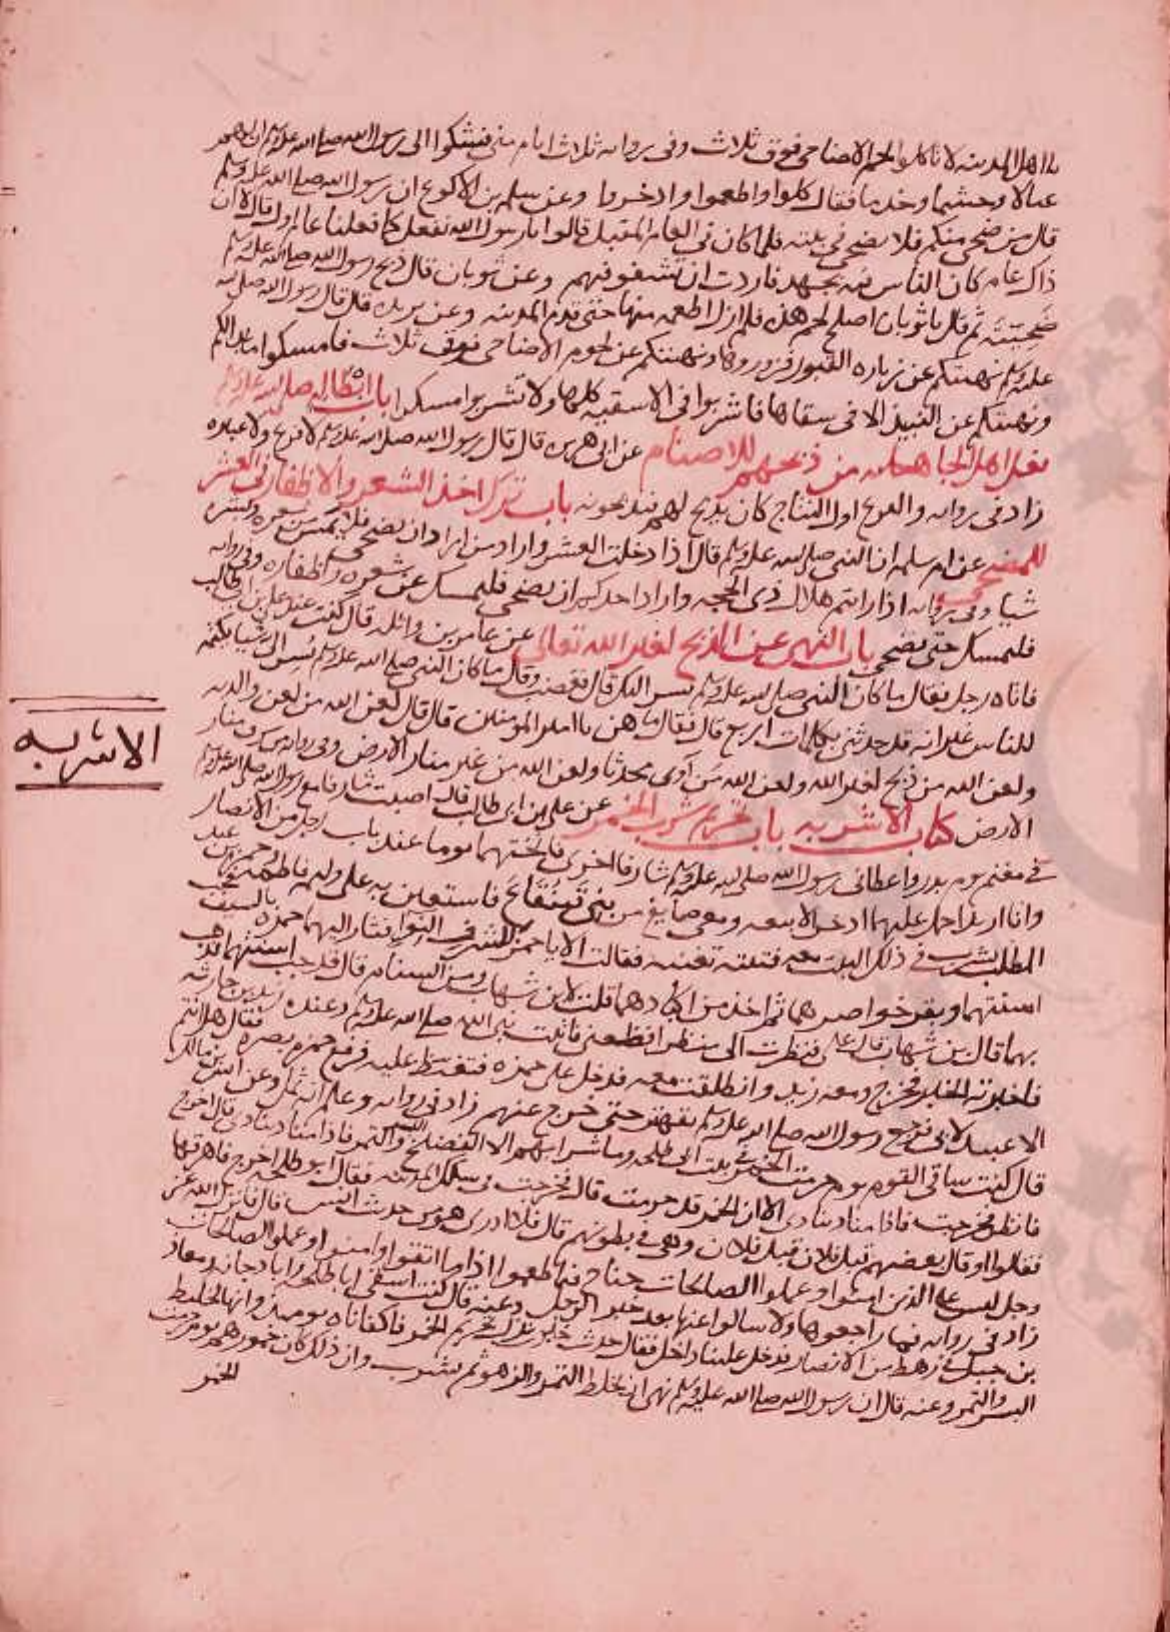 يا اهل المدينه لا تاكلوا لحم الاضاحى فوق ثلاث وفى روايه ثلاث ايام فشكوا الى رسول الله صلى الله عليه وسلم ان لهم
عيالا وحشما وخدما فقال كلوا واطعموا وادخروا وعن سلمه بن الاكوع ان رسول الله صلى الله عليه وسلم
قال من ضحى منكم فلا يضحى فى بيته فلما كان فى العام المقبل قالوا يا رسول الله نفعل كما فعلنا عام اول قال لا ان
ذاك عام كان الناس فيه بجهد فاردت ان تفشوا فيهم وعن ثوبان قال ذبح رسول الله صلى الله عليه وسلم
ضحيته ثم قال يا ثوبان اصلح لحم هذه فلم ازل اطعمه منها حتى قدم المدينه وعن بريده قال قال رسول الله صلى الله
عليه وسلم نهيتكم عن زياره القبور فزوروها ونهيتكم عن لحوم الاضاحى فوق ثلاث فامسكوا ما بدا لكم
ونهيتكم عن النبيذ الا فى سقا فاشربوا فى الاسقيه كلها ولا تشربوا مسكرا باب ابطاله صلى الله عليه وسلم
فعل اهل الجاهليه من ذبحهم للاصنام عن ابى هريره قال قال رسول الله صلى الله عليه وسلم لا فرع ولا عتيره
زاد فى روايه والفرع اول النتاج كان ينتج لهم فيذبحونه باب ترك اخذ الشعر والاظفار فى العشر
للمضحى عن ام سلمه ان النبى صلى الله عليه وسلم قال اذا دخلت العشر واراد من اراد ان يضحى فلا يمس من شعره وبشره
شيا وفى روايه اذا رايتم هلال ذى الحجه واراد احدكم ان يضحى فليمسك عن شعره واظفاره وفى روايه
فليمسك حتى يضحى باب النهى عن الذبح لغير الله تعالى عن عامر بن واثله قال كنت عند على بن ابى طالب
فاتاه رجل فقال ما كان النبى صلى الله عليه وسلم يسر اليك قال فغضب وقال ما كان النبى صلى الله عليه وسلم يسر الى شيا يكتمه
للناس غير انه قد حدثنى بكلمات اربع قال فقال ما هن يا امير المومنين قال قال لعن الله من لعن والديه
ولعن الله من ذبح لغير الله ولعن الله من آوى محدثا ولعن الله من غير منار الارض وفى روايه من سرق منار
الارض كتاب الاشربه باب تحريم شرب الخمر عن على بن ابى طالب قال اصبت شارفا مع رسول الله صلى الله عليه وسلم
الاشربه
فى مغنم يوم بدر واعطانى رسول الله صلى الله عليه وسلم شارفا اخرى فانختهما يوما عند باب رجل من الانصار
وانا اريد احمل عليهما اذخرا لابيعه ومعى صايغ من بنى قينقاع فاستعين به على وليمه فاطمه وحمزه بن عبد
المطلب يشرب فى ذلك البيت معه قينه تغنيه فقالت الا يا حمز للشرف النواء فثار اليهما حمزه بالسيف فجب
اسنمتهما وبقر خواصرهما ثم اخذ من اكبادهما قلت لابن شهاب ومن السنام قال قد جب اسنمتهما فذهب
بهما قال بن شهاب قال على فنظرت الى منظر افظعنى فاتيت نبى الله صلى الله عليه وسلم وعنده زيد بن حارثه
فاخبرته الخبر فخرج ومعه زيد وانطلقت معه فدخل على حمزه فتغيظ عليه فرفع حمزه بصره فقال هل انتم
الا عبيد لابى فرجع رسول الله صلى الله عليه وسلم يقهقر حتى خرج عنهم زاد فى روايه وعلم انه ثمل وعن انس بن مالك
قال كنت ساقى القوم يوم حرمت الخمر فى بيت ابى طلحه وما شرابهم الا الفضيخ البسر والتمر فاذا مناد ينادى قال اخرج
فانظر فخرجت فاذا مناد ينادى الا ان الخمر قد حرمت قال فجرت فى سكك المدينه فقال ابو طلحه اخرج فاهرقها
فقالوا او قال بعضهم قتل فلان قتل فلان وهى فى بطونهم قال فلا ادرى هو من حديث انس قال فانزل الله عز
وجل ليس على الذين امنوا وعملوا الصالحات جناح فيما طعموا اذا ما اتقوا وامنوا وعملوا الصالحات
زاد فى روايه فما راجعوها ولا سالوا عنها بعد خبر الرجل وعنه قال كنت اسقى ابا طلحه وابا دجانه ومعاذ
بن جبل فى رهط من الانصار فدخل علينا داخل فقال حدث خبر نزل تحريم الخمر فاكفاناها يوميذ وانها لخليط
البسر والتمر وعنه قال ان رسول الله صلى الله عليه وسلم نهى ان يخلط التمر والزهو ثم يشرب وان ذلك كان خمورهم يوم حرمت
الخمر